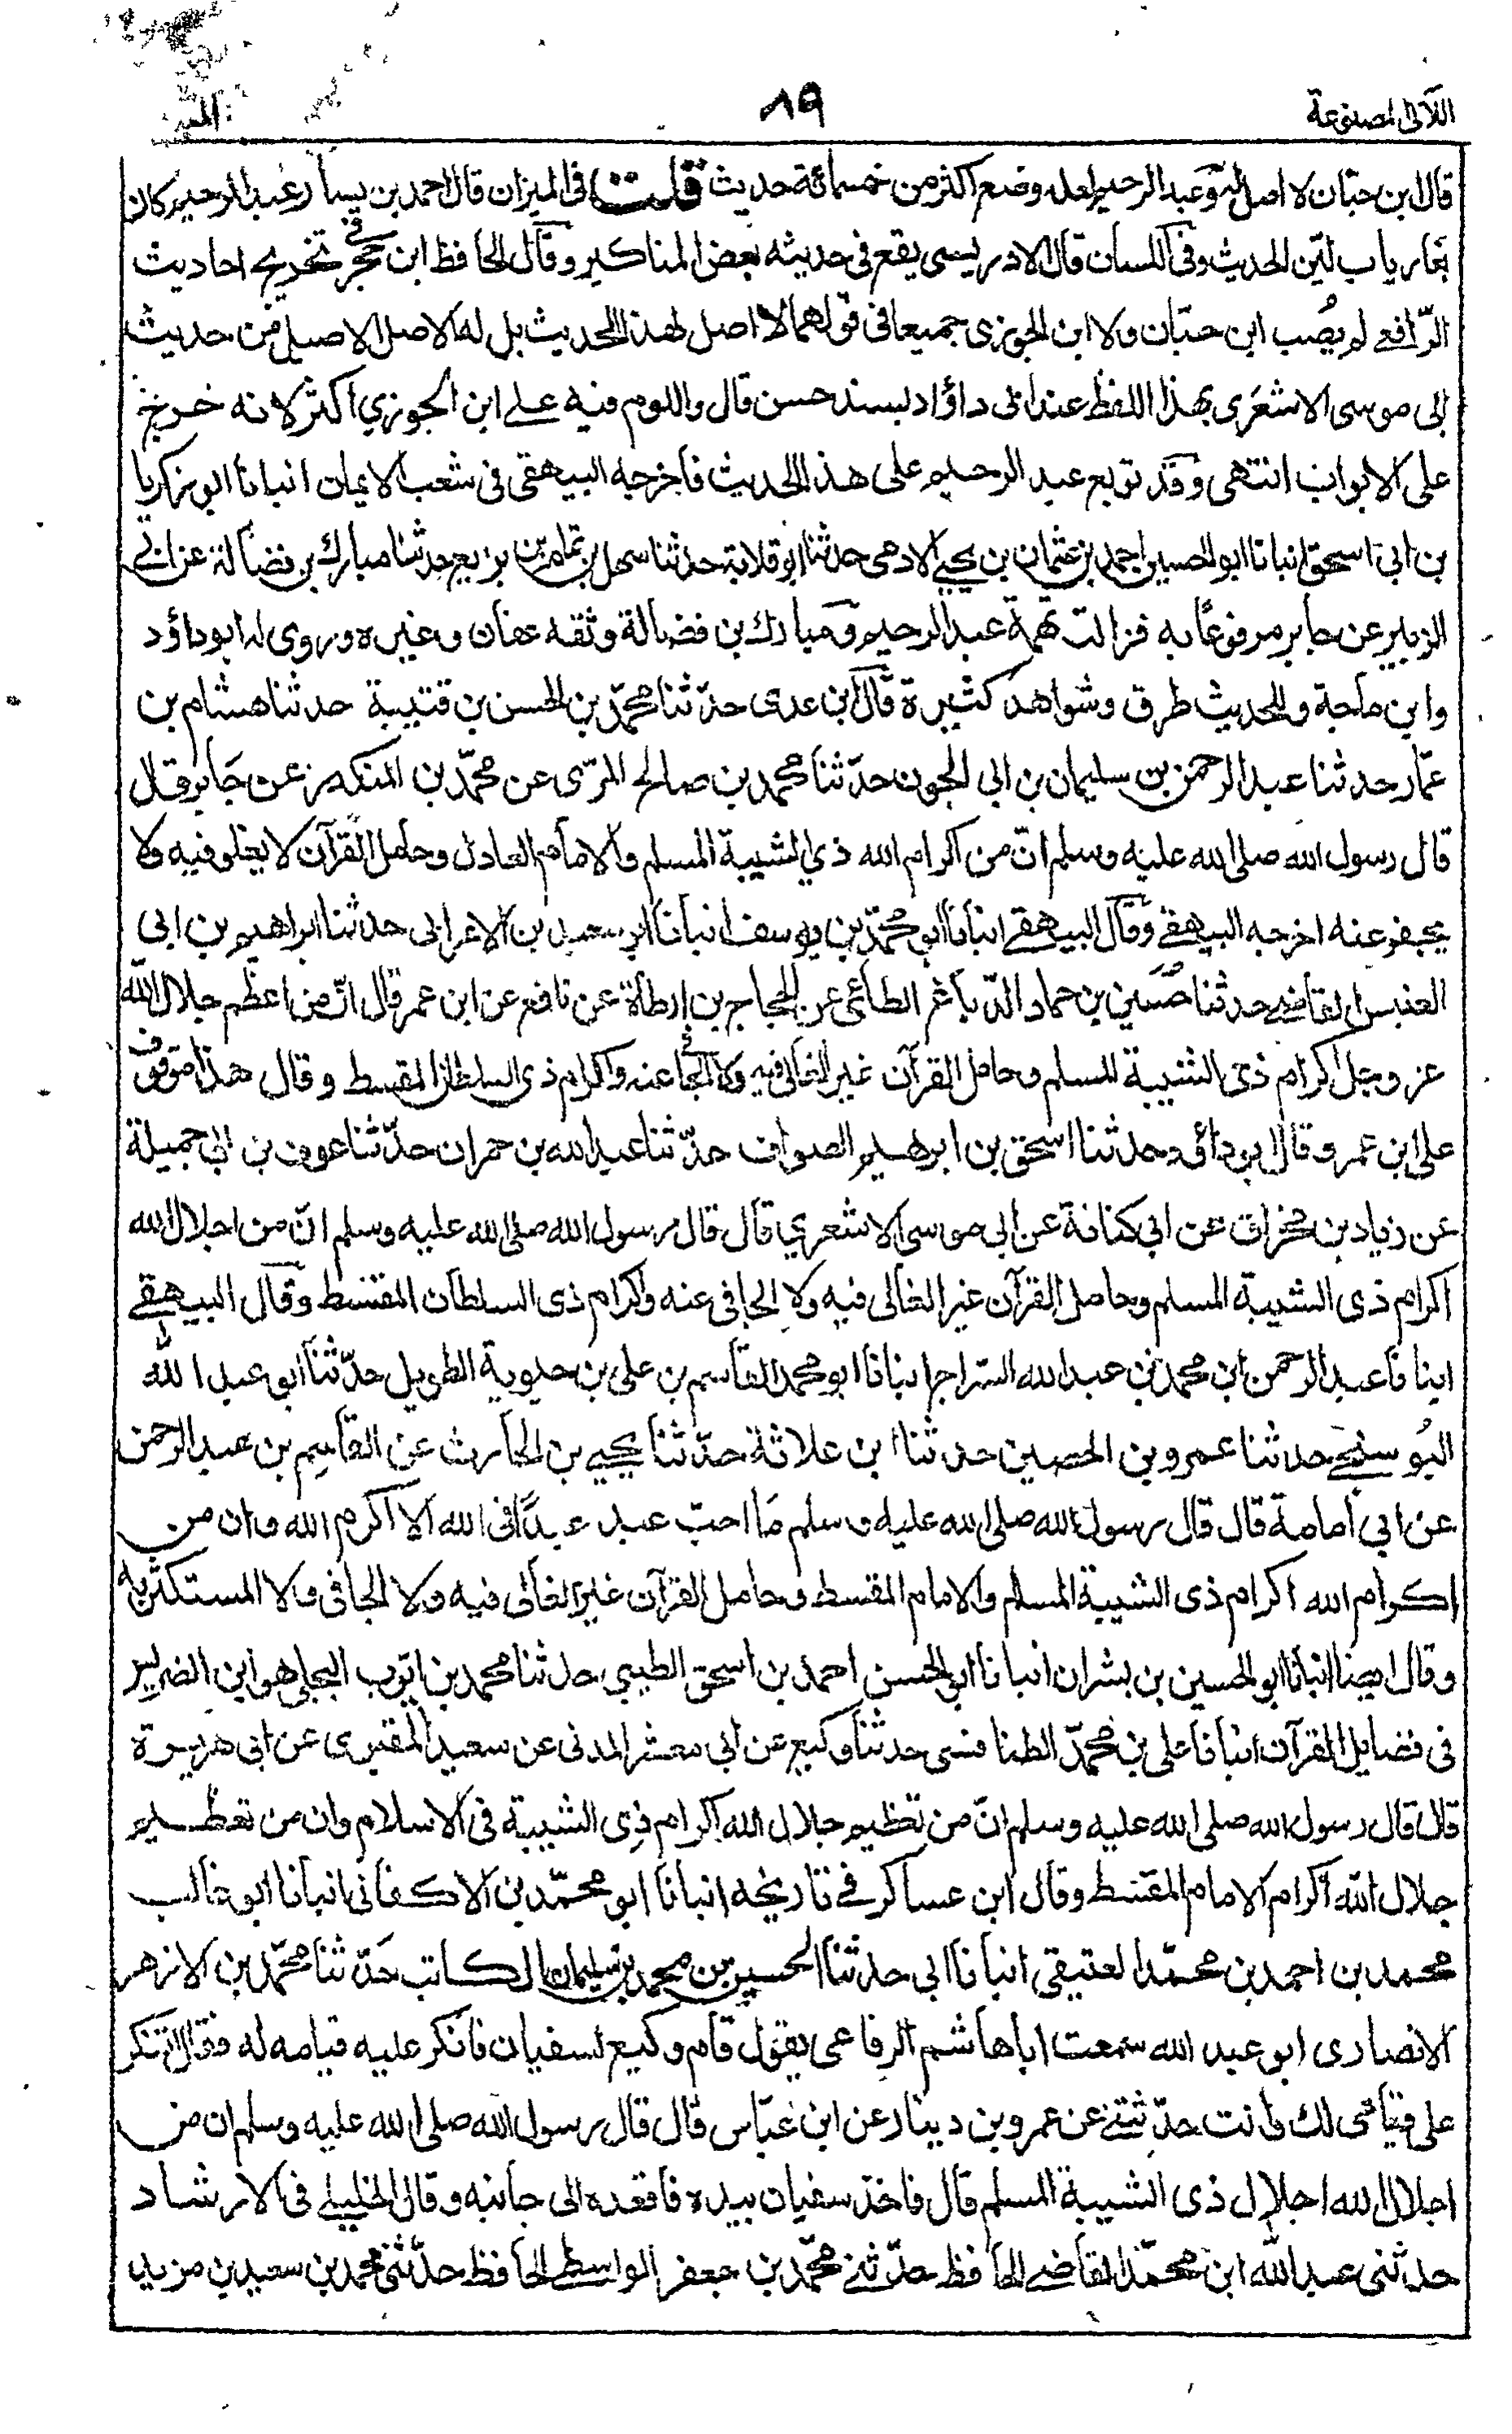 اللآلى لمصنوعة
٨٩
قال ابن حبّان لا اصل له وعبد الرحيم لعله وضع اكثر من خمسمائة حديث قلت فى الميزان قال احمد بن يسار عبد الرحيم كان
بفارياب ليّن الحديث وفى اللسان قال الادريسى يقع فى حديثه بعض المناكير وقال الحافظ ابن حجر فى تخريج احاديث
الرّافعى لم يصُب ابن حبّان ولا ابن الجوزى جميعا فى قولهما لا اصل لهذا الحديث بل له الاصل الاصيل من حديث
ابى موسى الاشعرى بهذا اللفظ عند ابى داؤد بسند حسن قال واللوم فيه على ابن الجوزي اكثر لانه خرج
على الابواب انتهى وقد توبع عبد الرحيم على هذا الحديث فاخرجه البيهقى فى شعب الايمان انبانا ابو زكريا
بن ابى اسحق انبانا ابو الحسين احمد بن عثمان بن يحيى الادمى حدثنا ابو قلابة حدثنا سهل بن تمام بن بزيع حدثنا مبارك بن فضالة عن ابى
الزبير عن جابر مرفوعًا به فزالت تهمة عبد الرحيم ومبارك بن فضالة وثقه عفان وغيره وروى له ابو داؤد
وابن ماجة وللحديث طرق وشواهد كثيرة قال ابن عدى حدّثنا محمّد بن الحسن بن قتيبة حدثنا هشام بن
عمّار حدثنا عبد الرحمن بن سليمان بن ابى الجون حدّثنا محمد بن صالح المرّى عن محمّد بن المنكدر عن جَابر قال
قال رسول الله صلى الله عليه وسلم انّ من اكرام الله ذي الشيبة المسلم والامام العادل وحامل القرآن لا يغلو فيه ولا
يجفو عنه اخرجه البيهقى وقال البيهقى انبانا ابو محمّد بن يوسف انبانا ابو سعيد بن الاعرابى حدثنا ابراهيم بن ابى
العنبس القاضى حدثنا حُسَين بن حماد الدّباغ الطائى عن الحجاج بن ارطاة عن نافع عن ابن عمر قال انّ من اعظم جلال الله
عز وجل اكرام ذى الشيبة المسلم وحامل القرآن غير الغالى فيه ولا الجافى عنه واكرام ذى السلطان المقسط وقال هذا موقوف
على ابن عمر وقال ابو داؤد حدثنا اسحق بن ابرهيم الصواف حدّثنا عبد الله بن حمران حدّثنا عوف بن ابى جميلة
عن زياد بن مخراق عن ابى كنانة عن ابى موسى الاشعري قال قال رسول الله صلى الله عليه وسلم انّ من اجلال الله
اكرام ذى الشيبة المسلم وحامل القرآن غير الغالى فيه ولا الجافى عنه واكرام ذى السلطان المقسط وقال البيهقى
انبانا عبد الرحمن ابن محمد بن عبد الله السراج انبانا ابو محمد القاسم بن على بن حمدوية الطويل حدّثنا ابو عبد الله
البُوسنجى حدثنا عمرو بن الحصين حدثنا ابن علاثة حدّثنا يحيى بن الحارث عن القاسِم بن عبد الرحمن
عن ابى أمامة قال قال رسول الله صلى الله عليه وسلم مَا احبّ عبد عبدًا فى الله الا اكرم الله وان من
اكرام الله اكرام ذى الشيبة المسلم والامام المقسط وحامل القرآن غير الغالى فيه ولا الجافى ولا المستكثر به
وقال ايضا انبانا ابو الحسين بن بشران انبانا ابو الحسن احمد بن اسحق الطيبي حدثنا محمد بن ايّوب البجلى هو ابن الضريس
فى فضايل القرآن انبانا على بن محمّد الطنافسى حدثنا وكيع عن ابى معشر المدنى عن سعيد المقبرى عن ابى هريرة
قال قال رسول الله صلى الله عليه وسلم انّ من تعظيم جلال الله اكرام ذِى الشيبة فى الاسلام وان من تعظيم
جلال الله اكرام الامام المقسط وقال ابن عساكر فى تاريخه انبانا ابو محمّد بن الاكفانى انبانا ابو غالب
محمد بن احمد بن محمّد العتيقى انبانا ابى حدثنا الحسين بن محمد بن سليمان الكاتب حَدّثنا محمّد بن الازهر
الانصارى ابو عبد الله سمعت ابا هاشم الرفاعى يقول قام وكيع لسفيان فانكر عليه قيامه له فقال اتنكر
على قيامى لك وانت حدّثتنى عن عمرو بن دينار عن ابن عبّاس قال قال رسول الله صلى الله عليه وسلم ان من
اجلال الله اجلال ذى الشيبة المسلم قال فاخذ سفيان بيده فاقعده الى جانبه وقال الخليلى فى الارشاد
حدثنى عبد الله ابن محمّد القاضى الحافظ حدّثنى محمّد بن جعفر الواسطى الحافظ حدّثنى محمد بن سعيد بن مزيد